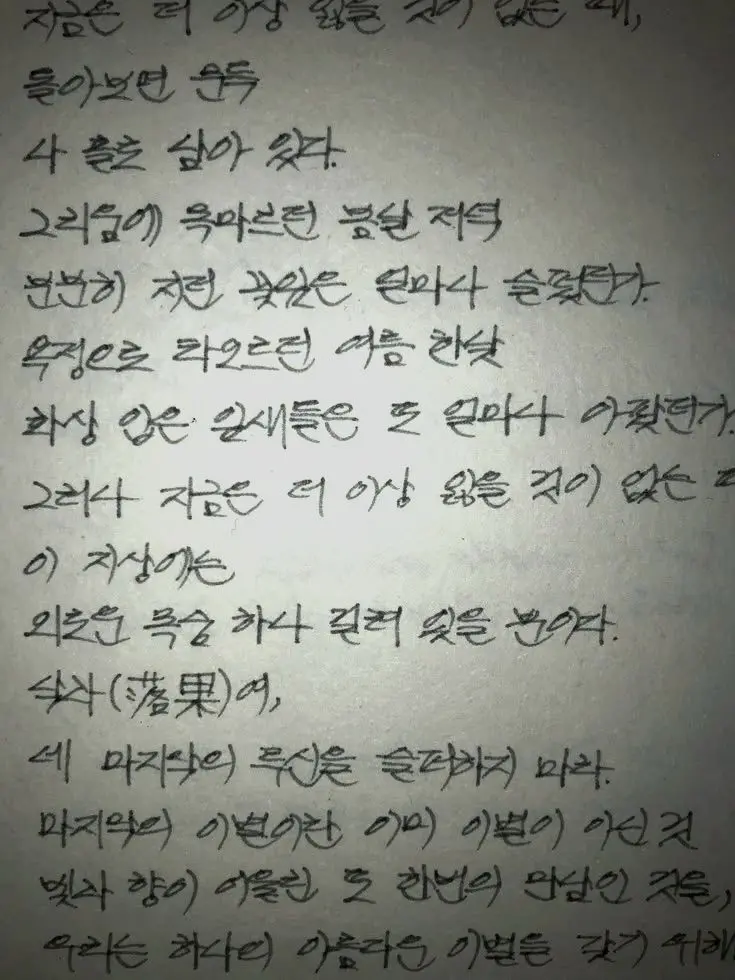 지금은 더 이상 잃을 것이 없는 때,
돌아보면 문득
나 홀로 남아 있다.
그리움에 목마르던 봄날 저녁
분분히 지던 꽃잎은 얼마나 슬펐던가.
욕정으로 타오르던 여름 한낮
화상 입은 잎새들은 또 얼마나 아팠던가.
그러나 지금은 더 이상 잃을 것이 없는
이 지상에는
외로운 목숨 하나 걸려 있을 뿐이다.
낙과(落果)여,
네 마지막의 투신을 슬퍼하지 마라.
마지막의 이별이란 이미 이별이 아닌 것
빛과 향이 어울린 또 한번의 만남인 것을,
우리는 하나의 아름다운 이별을 갖기 위해